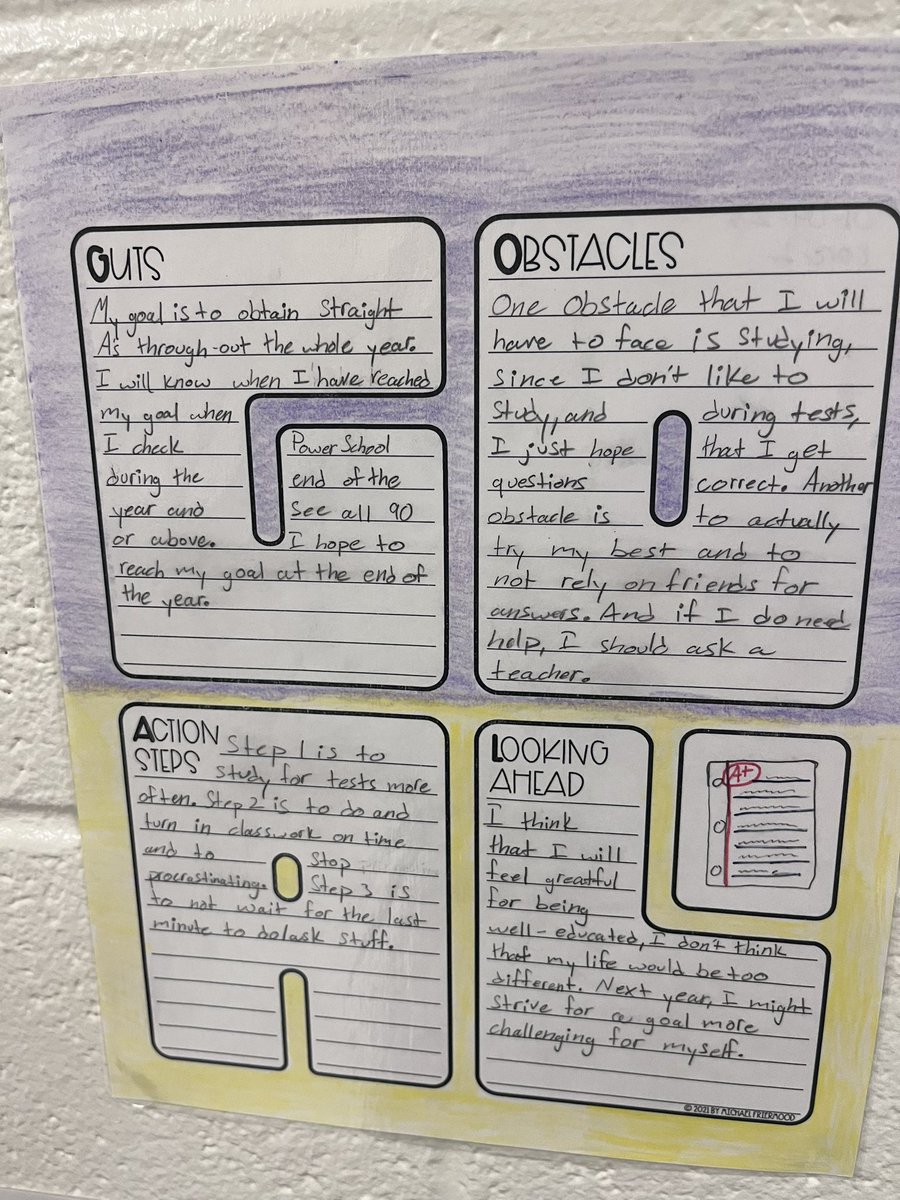 GUTS
My goal is to obtain Straight
A's through-out the whole year.
I will know when I have reached
my goal when
I check PowerSchool
during the end of the
year and See all 90
or above. I hope to
reach my goal at the end of
the year.
OBSTACLES
One Obstacle that I will
have to face is Studying,
Since I don't like to
Study, and during tests,
I just hope that I get
questions correct. Another
obstacle is to actually
try my best and to
not rely on friends for
answers. And if I do need
help, I should ask a
teacher.
ACTION STEPS
Step 1 is to
study for tests more
often. Step 2 is to do and
turn in classwork on time
and to Stop
procrastinating. Step 3 is
to not wait for the last
minute to do/ask stuff.
LOOKING
AHEAD
I think
that I will
feel greatful
for being
well-educated, I don't think
that my life would be too
different. Next year, I might
Strive for a goal more
challenging for myself.
A+
© 2021 BY MICHAEL FRIERMOOD